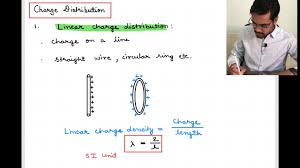 Charge Distribution
1. Linear charge distribution :
• charge on a line
• straight wire, circular ring etc.
Linear charge density = Charge
length
λ = q/L
SI unit